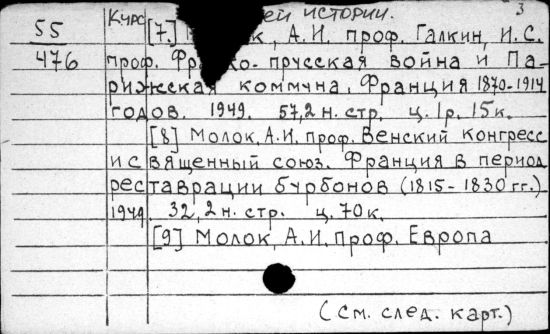 Курс ей истории. 3
55 [7.] М ок, А.И. проф. Галкин, И.С.
476 проф. Фра ко-прусская война и Па-
рижская коммуна. Франция 1870-1914
годов. 1949. 57,2 н. стр. ц. 1р. 15к.
[8] Молок, А.И. проф. Венский конгресс
и священный союз. Франция в период
реставрации бурбонов (1815-1830 гг.)
1949. 32,2 н. стр. ц. 70к.
[9] Молок, А.И. проф. Европа
(см. след. карт.)